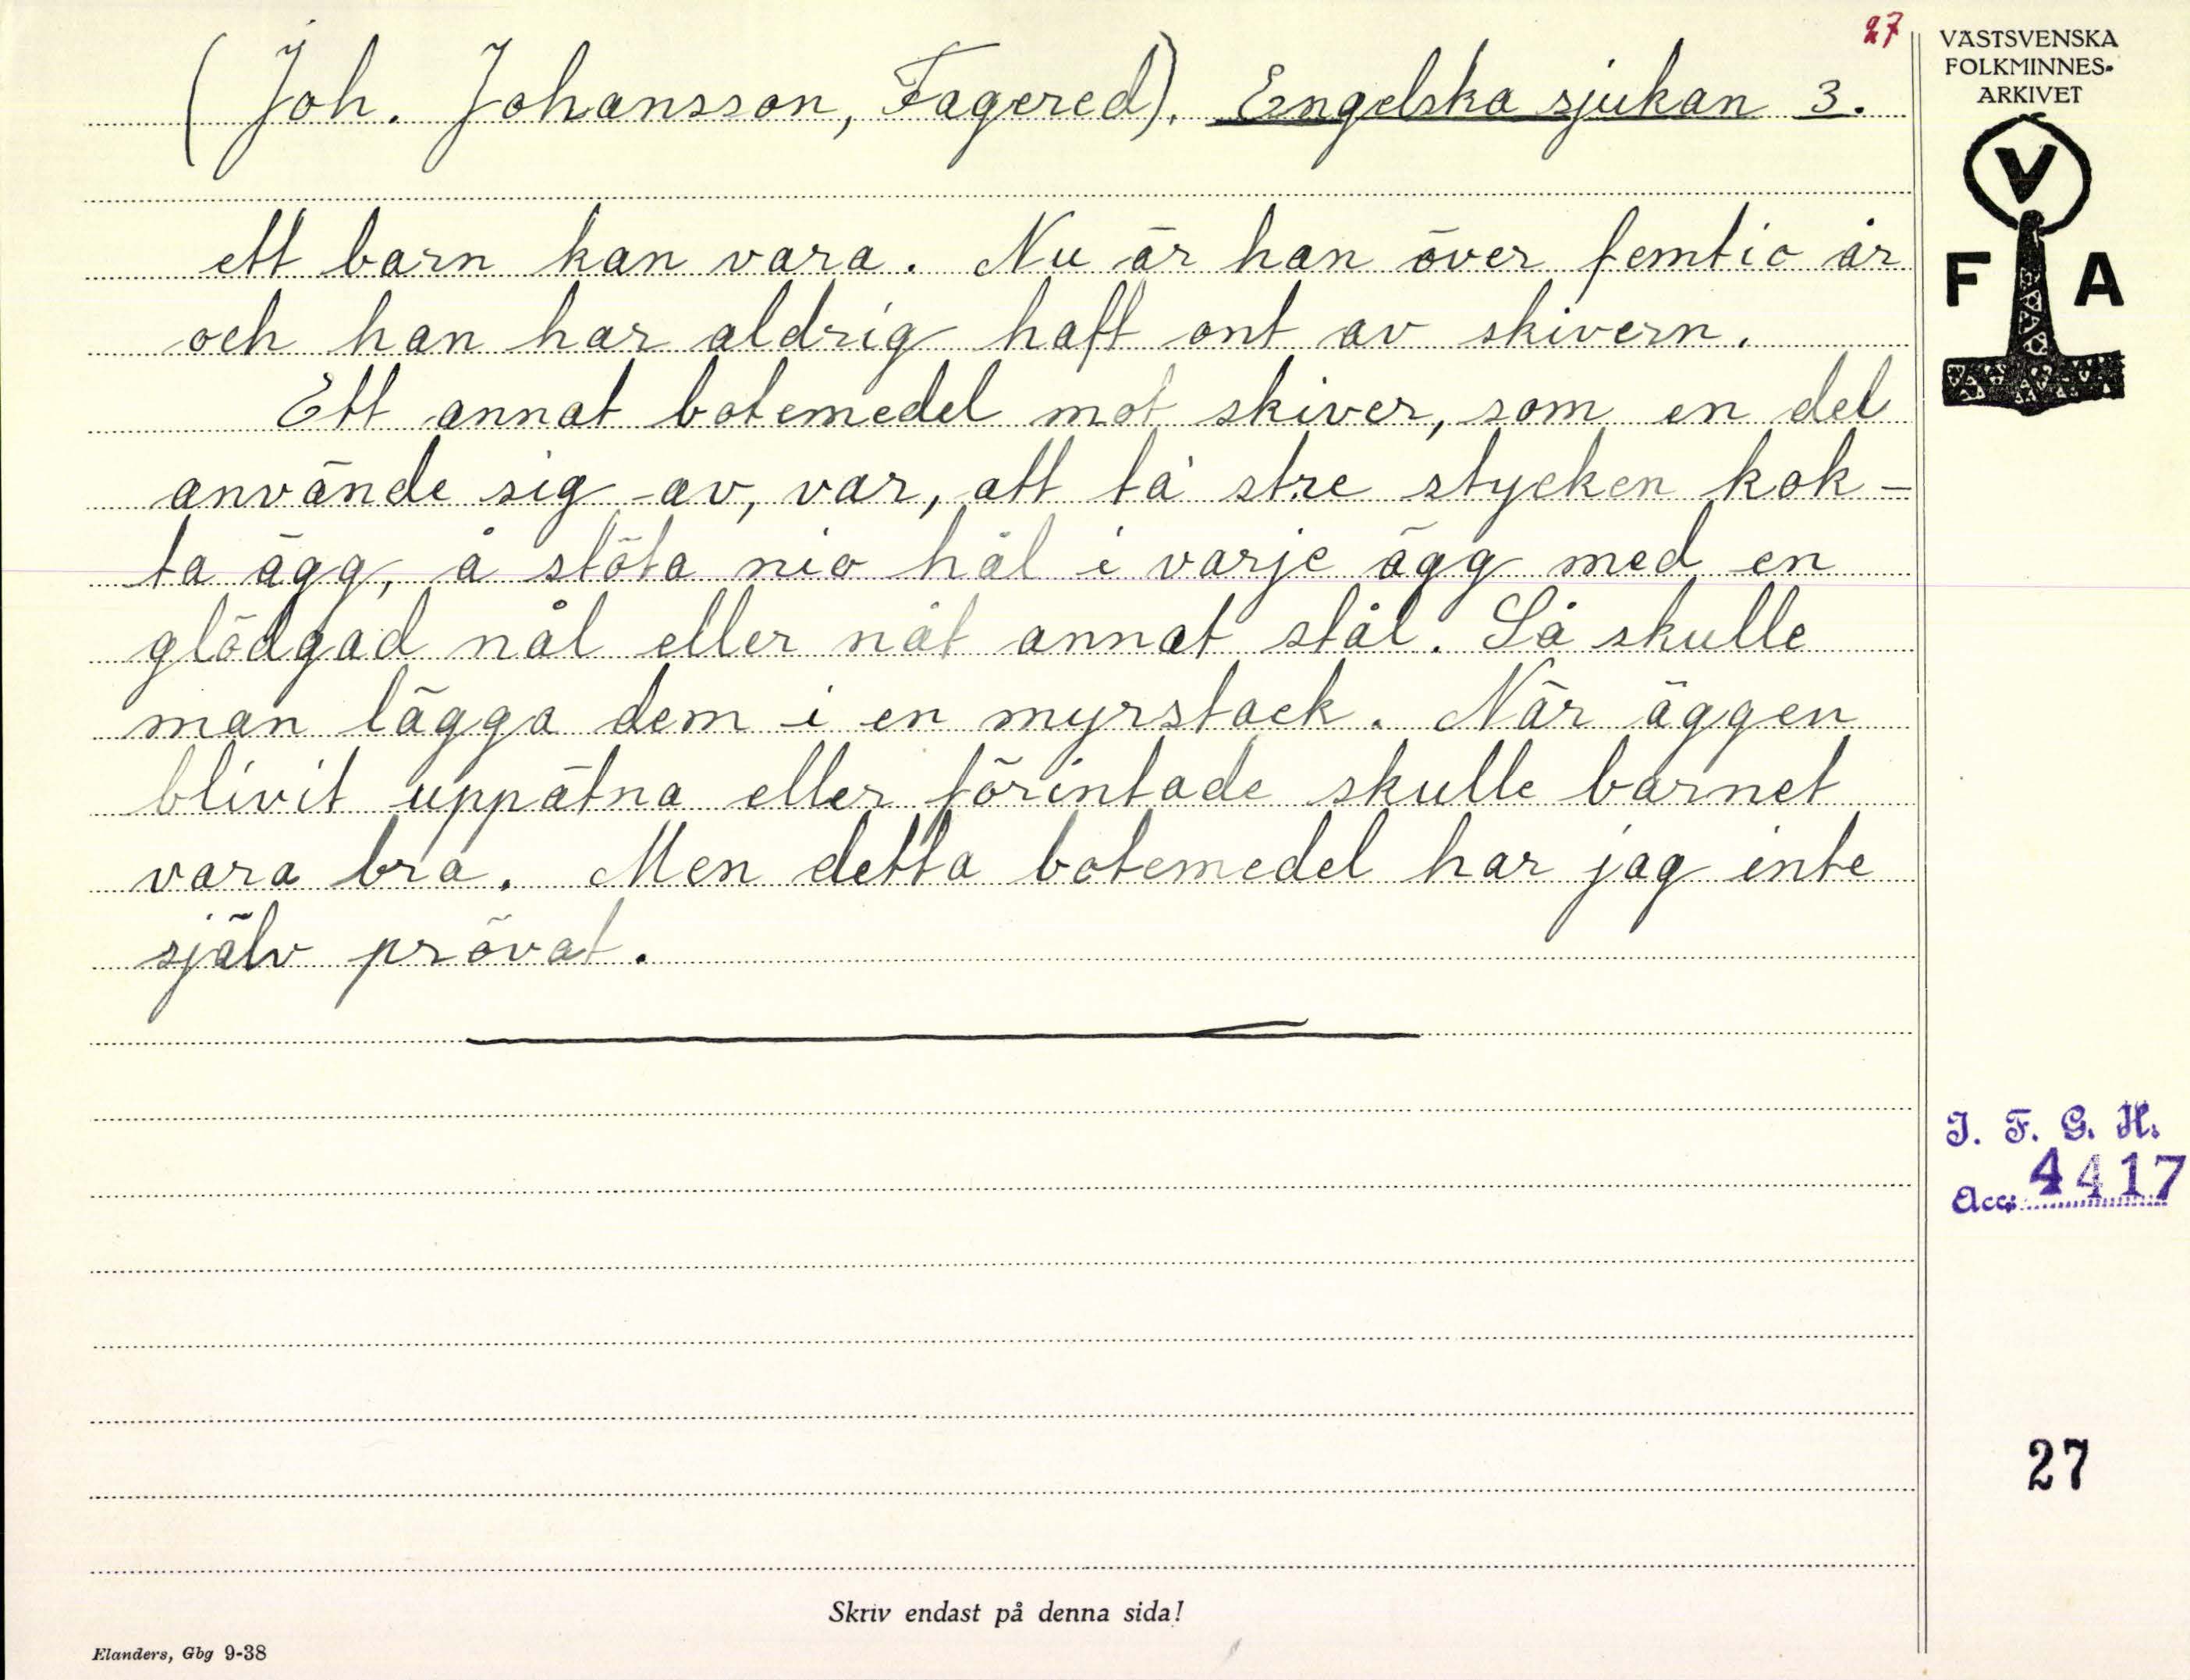 27
(Joh. Johansson, Fagered). Engelska sjukan 3.
ett barn kan vara. Nu är han över femtio år
och han har aldrig haft ont av skivern.
Ett annat botemedel mot skiver, som en del
använde sig av, var, att ta stre stycken kok-
ta ägg, å stöta nio hål i varje ägg med en
glödgad nål eller nåt annat stål. Så skulle
man lägga dem i en myrstack. När äggen
blivit uppätna eller förintade skulle barnet
vara bra. Men detta botemedel har jag inte
själv prövat.
VÄSTSVENSKA
FOLKMINNES-
ARKIVET
V
F A
I. F. G. H.
Acc. 4417
27
Skriv endast på denna sida!
Elanders, Gbg 9-38